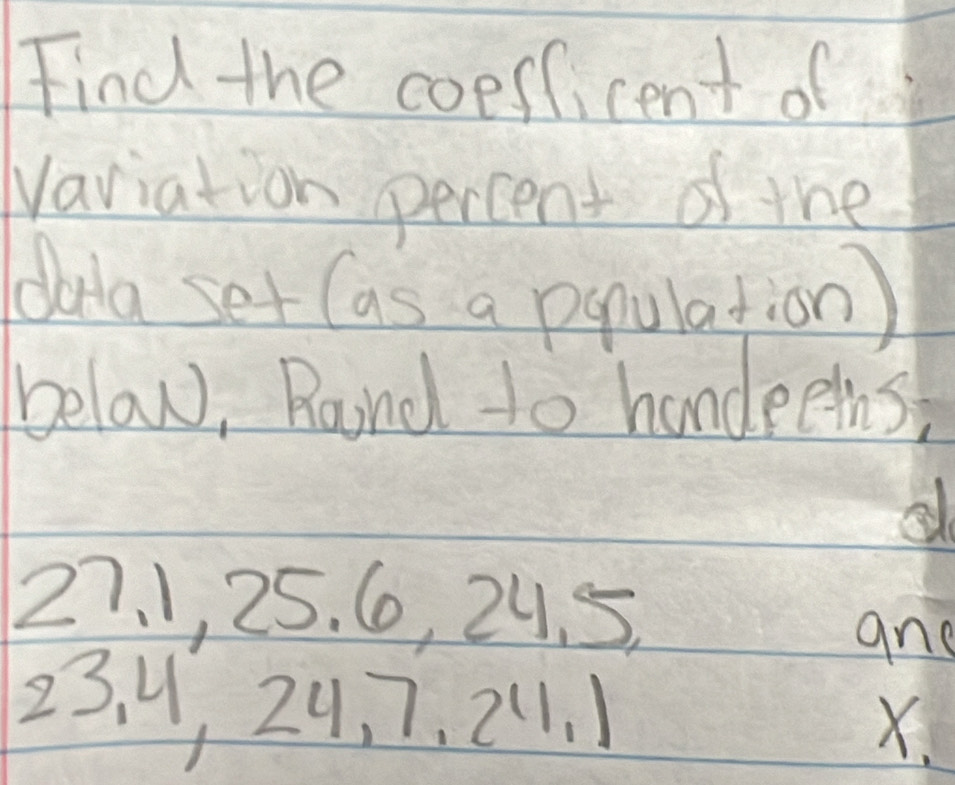 Find the coefficent of
Variation percent of the
data set (as a population)
below. Round to hundeeths.
27.1, 25.6, 24.5,
ane
23.4, 24.7, 24.1
X.